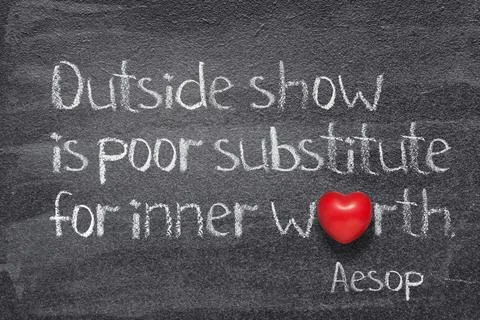 Outside show
is poor substitute
for inner worth.
Aesop